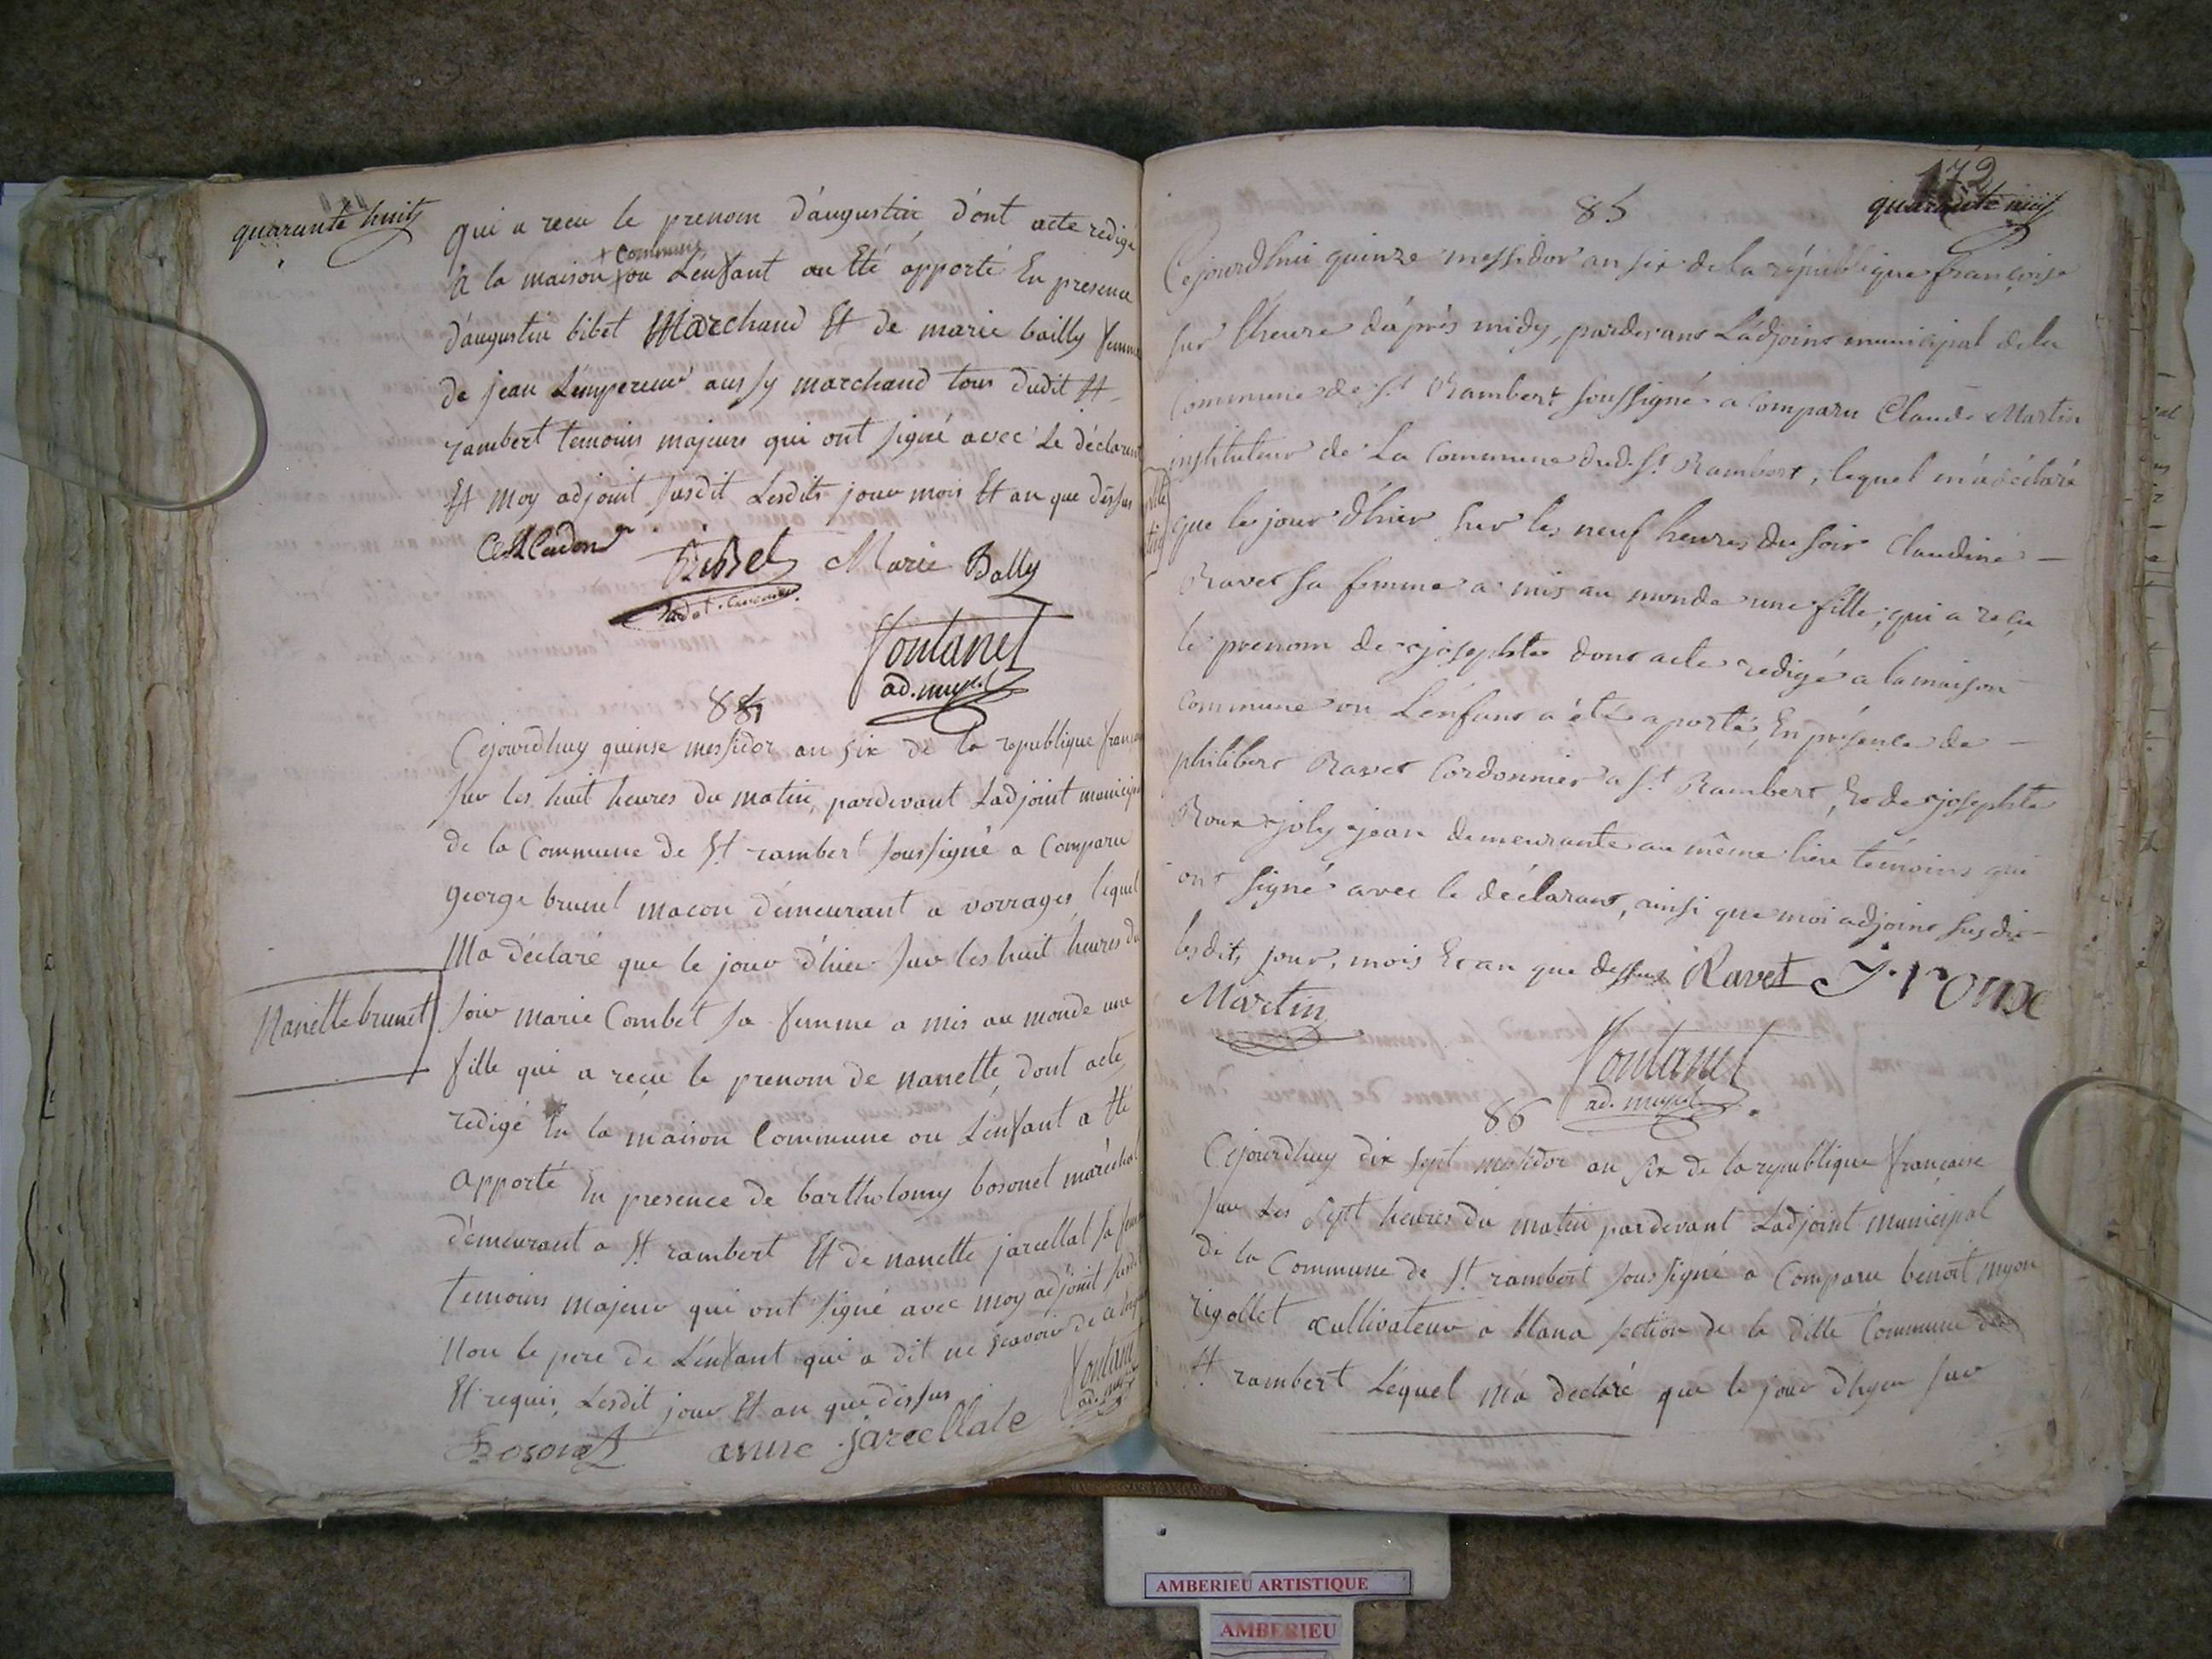 quarante huit
qui a recu le prenom d'augustin d'ont acte redigé
+ commune
à la maison ou L'enfant au Eté apporté En presence
d'augustin bibet Marchand Et de marie bailly femme
de jean L'empereur aussy marchand tous dudit St
rambert temoins majeurs qui ont signé avec Le déclarant
Et moy adjoint susdit Lesdits jour mois Et an que dessus
Bibet Marie Bally
fontanet
ad. mupl.
84
Cejourdhuy quinse messidor an six de la republique française
sur les huit heures du matin, pardevant Ladjoint municipal
de la Commune de St rambert soussigné a Comparu
george brunet macon demeurant a vorrages lequel
Ma déclaré que le jour d'hier sur les huit heures du
Nanette brunet
soir marie Combet sa femme a mis au monde une
fille qui a reçu le prenom de nanette, dont acte
redigé En la maison Commune ou L'enfant a Eté
apporté En presence de bartholomy bosonet maréchal
demeurant a St rambert Et de nanette jarcellat sa femme
temoins majeur qui ont signé avec moy adjoint susdit
Non le pere de L'enfant qui a dit ne scavoir de ce
Et requis, Lesdit jour Et an que dessus
fontanet
ad. mupl
Bosonet anne jarcellate
172
quarante neuf
85
Cejourdhui quinze messidor an six de la république françoise
sur l'heure d'après midy, pardevant L'adjoint municipal de la
Commune de St Rambert soussigné a Comparu Claude Martin
instituteur de La Commune dud. St Rambert, lequel m'a déclaré
que le jour d'hier sur les neuf heures du soir Claudine
Ravet sa femme a mis au monde une fille, qui a reçu
le prenom de josephte dont acte redigé a la maison
commune ou L'enfant a été aporté, En présence de
philibert Ravet Cordonnier a St Rambert, Et de josephte
Roux joly jean demeurante au même lieu témoins qui
ont signé avec le déclarant, ainsi que moi adjoint susdit
lesdits jour, mois Et an que dessus Ravet J roux
Martin
fontanet
ad. mupl
86
Cejourdhuy dix sept messidor an six de la republique française
sur Les sept heures du matin pardevant Ladjoint municipal
de la Commune de St rambert soussigné a Comparu benoit myon
rigollet cultivateur a blana section de la ditte Commune de
St rambert Lequel m'a declaré que le jour d'hyer sur
AMBERIEU ARTISTIQUE
AMBERIEU